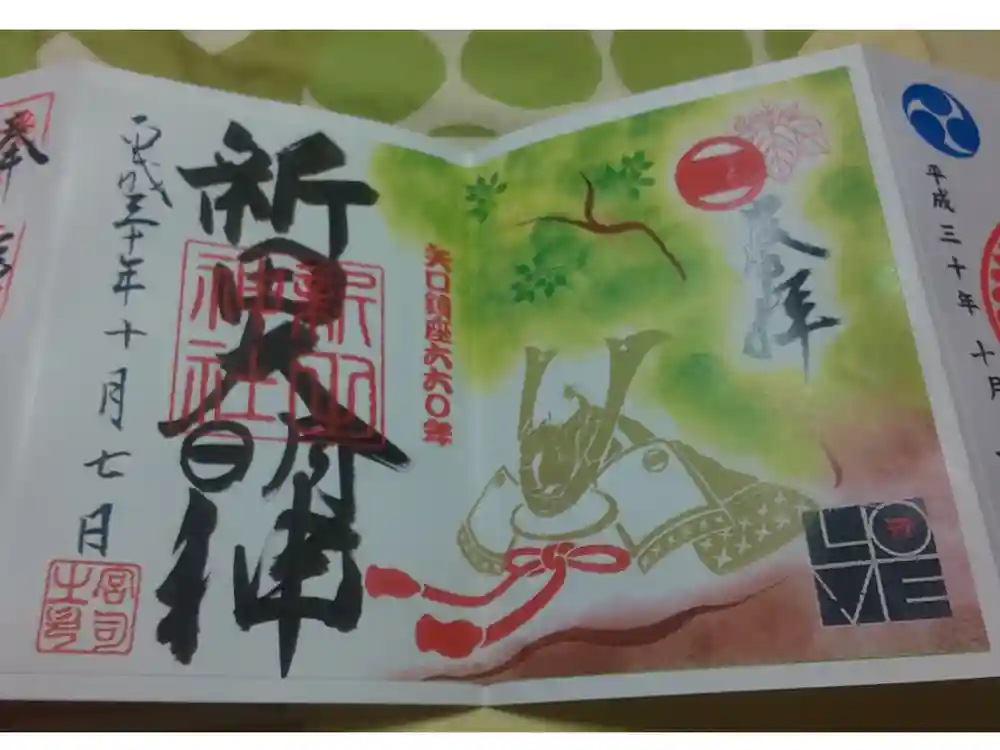 奉拝
矢口鎮座六六〇年
新田大明神
新田神社
平成三十年十月七日
宮司之印
LOVE
平成三十年十月